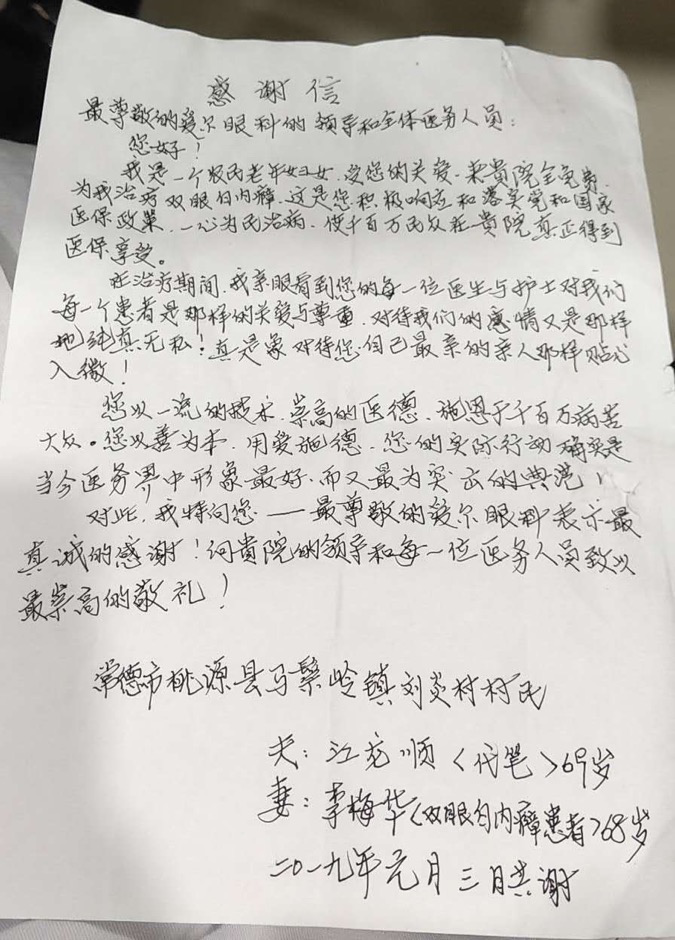 感谢信
最尊敬的爱尔眼科的领导和全体医务人员：
您好！
我是一个农民老年妇女，受您的关爱，来貴院全免费
为我治疗双眼白内癣，这是您积极响应和落实党和国家
医保政策，一心为民治病，使千百万民众在貴院真正得到
医保享受。
在治疗期间，我亲眼看到您的每一位医生与护士对我们
每一个患者是那样的关爱与尊重，对待我们的感情又是那样
地纯真无私！真是象对待您自己最亲的亲人那样贴心
入微！
您以一流的技术，崇高的医德，施恩于千百万病苦
大众。您以善为本，用爱施德，您的实际行动确实是
当今医务界中形象最好，而又最为突出的典范！
对此，我特向您——最尊敬的爱尔眼科表示最
真诚的感谢！向貴院的领导和每一位医务人员致以
最崇高的敬礼！
常德市桃源县马鬃岭镇刘炎村村民
夫：江龙顺〈代笔〉69岁
妻：李梅华〈双眼白内癣患者〉68岁
二0一九年元月三日共谢